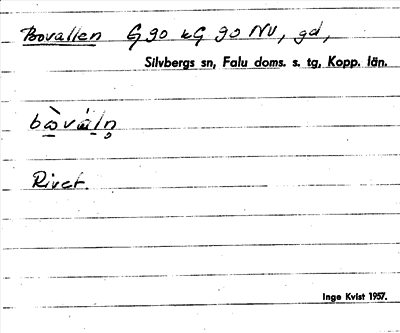 Bovallen G 90 kG 90 NV, gd,
Silvbergs sn, Falu doms. s. tg, Kopp. län.
bòvál̥n̥
Rivet.
Inge Kvist 1957.